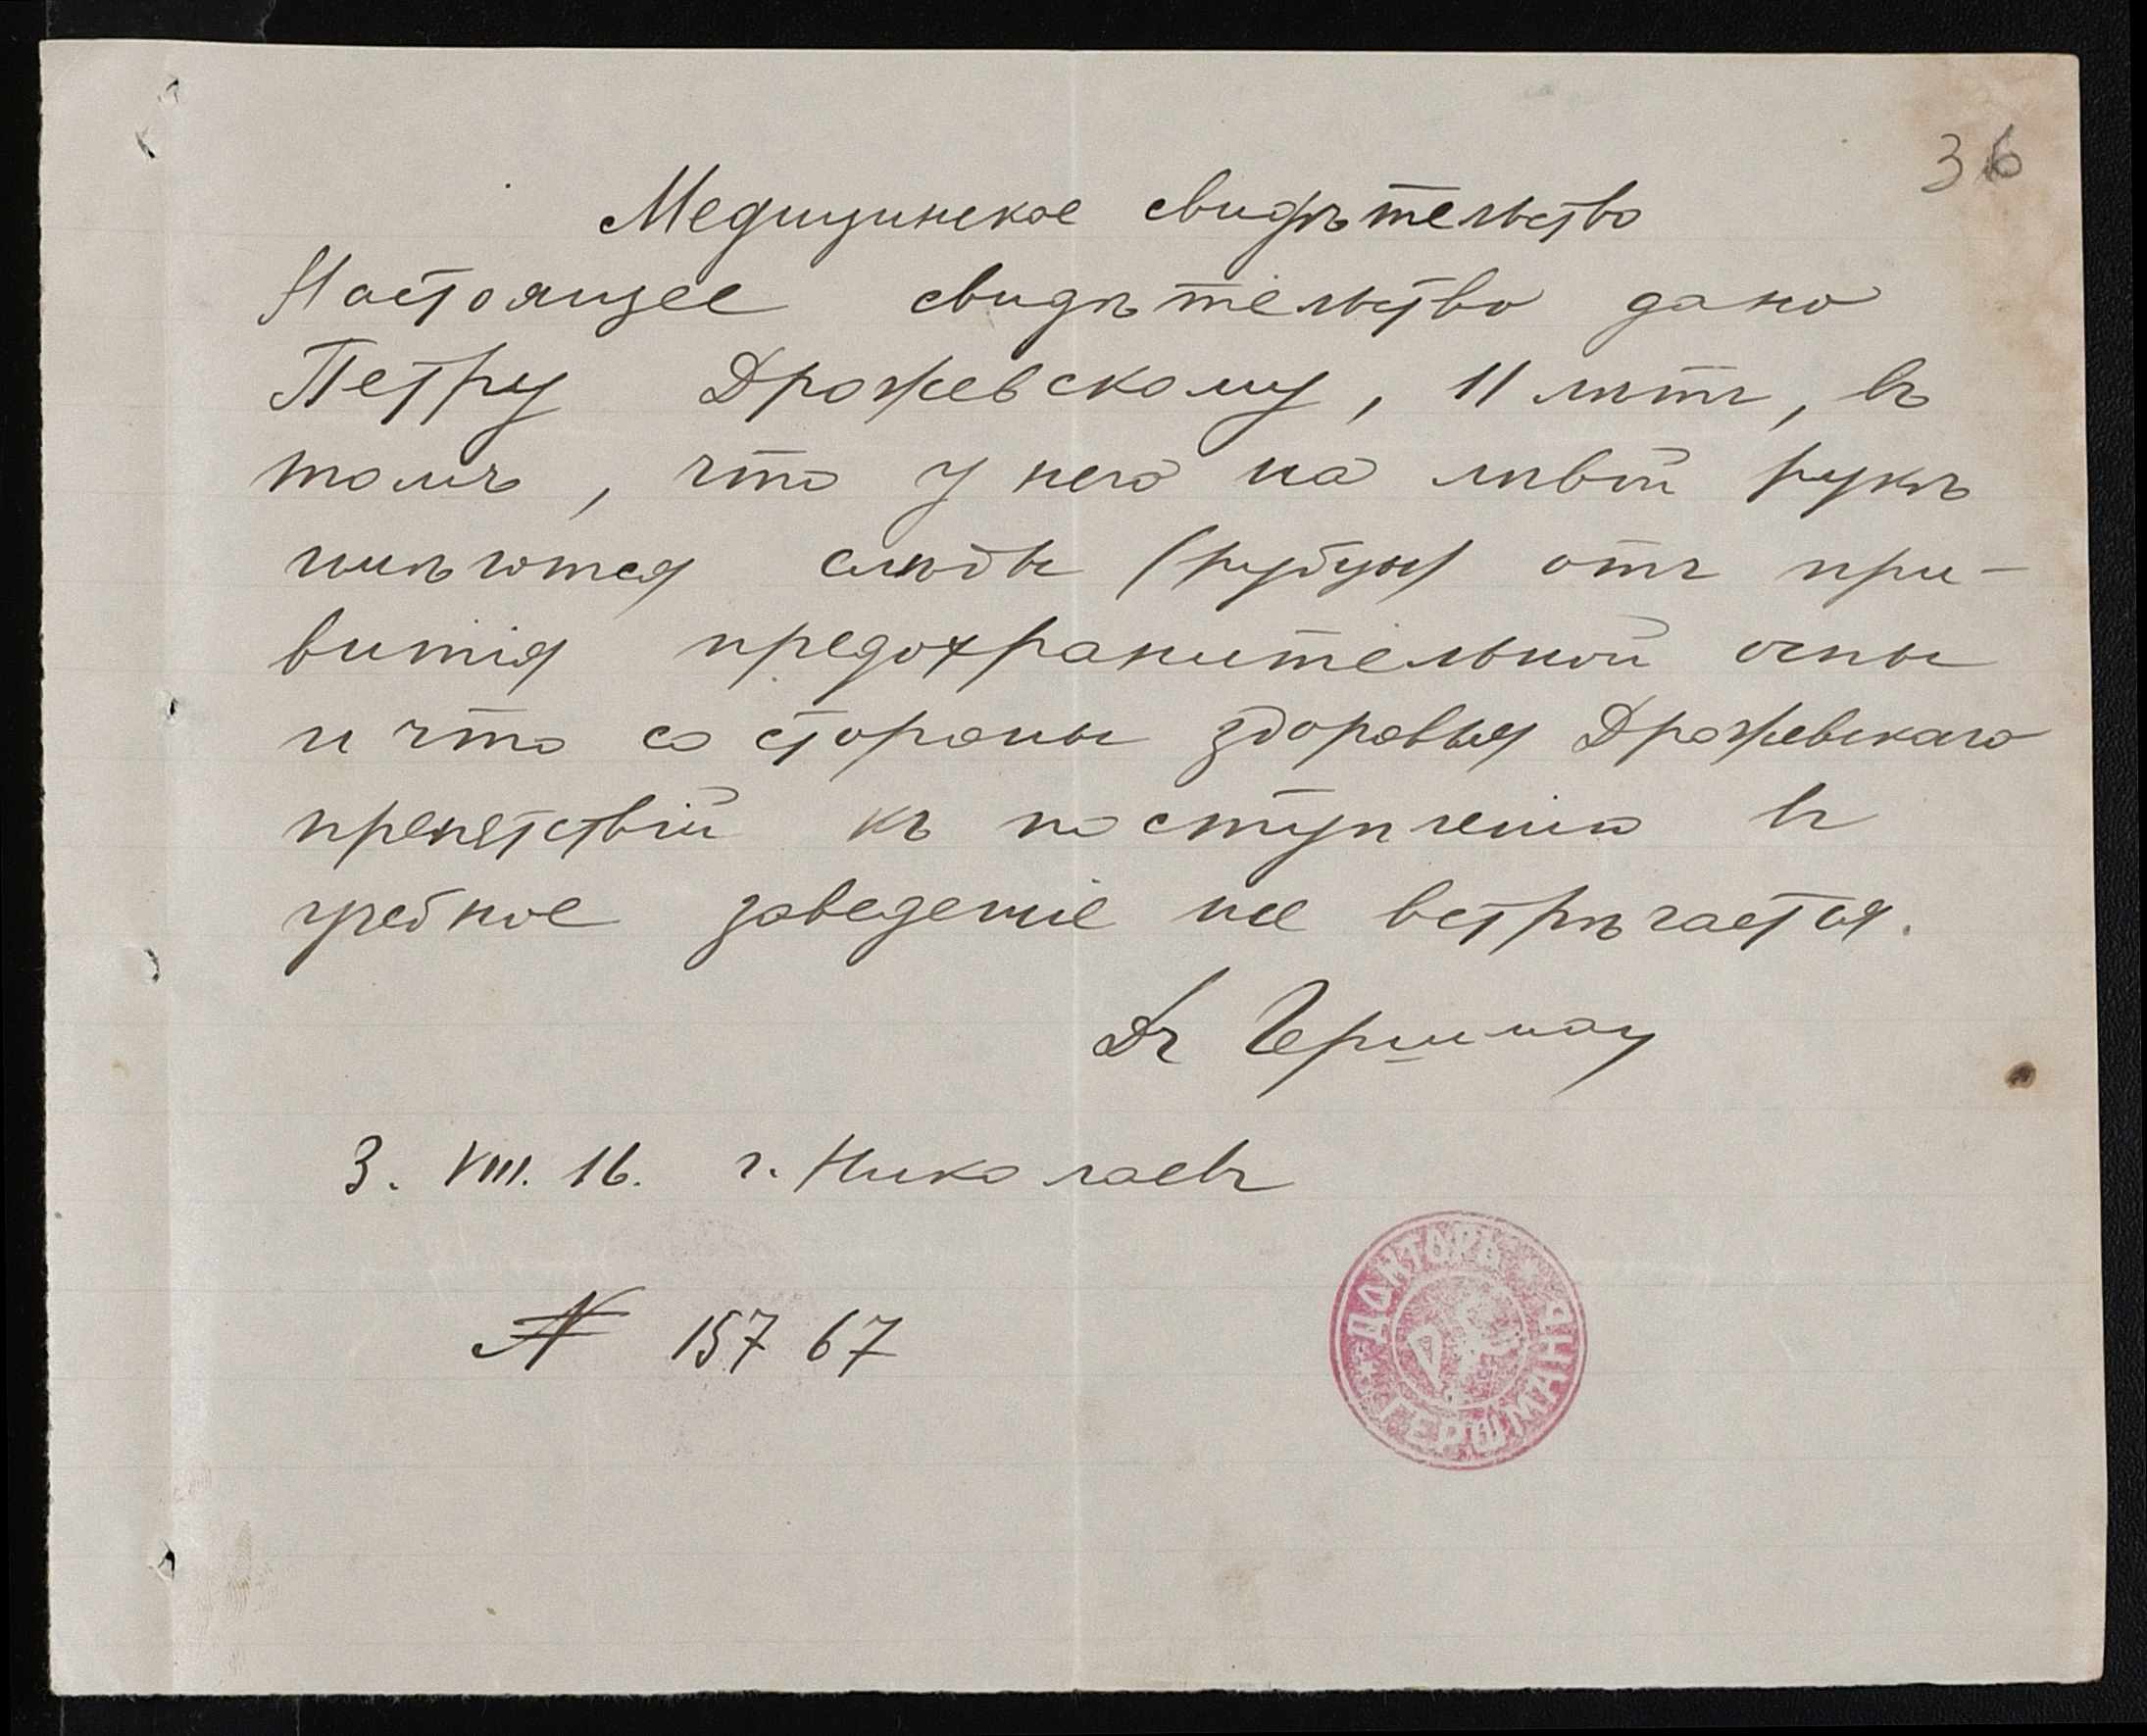 36
Медицинское свидѣтельство
Настоящее свидѣтельство дано
Петру Дрожевскому, 11 лѣтъ, въ
томъ, что у него на лѣвой рукѣ
имѣются слѣды (рубцы) отъ при-
витія предохранительной оспы
и что со стороны здоровья Дрожевскаго
препятствій къ поступленію въ
учебное заведеніе не встрѣчается.
Dr Гершман
3. VIII. 16. г. Николаевъ
№ 157 67
ДОКТОРЪ
ГЕРШМАНЪ